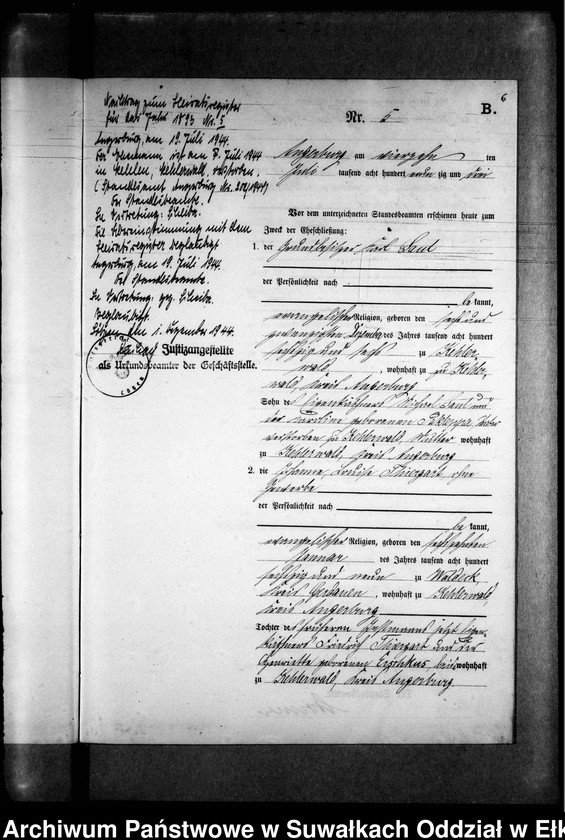 Nachtrag zum Heiratsregister
für das Jahr 1893 Nr. 5
Angerburg, am 19. Juli 1944.
Der Ehemann ist am 7. Juli 1944
in Kehlen, Kehlerwald, verstorben.
(Standesamt Angerburg Nr. /1944)
Der Standesbeamte.
In Vertretung:
Die Übereinstimmung mit dem
Heiratsregister beglaubigt
Angerburg, am 19. Juli 1944.
Der Standesbeamte.
In Vertretung: gez.
Beglaubigt.
Lötzen, den 1. Dezember 1944.
Justizangestellte
als Urkundsbeamter der Geschäftsstelle.
6
B.
Nr. 5
Angerburg am vierzehn ten
Juli tausend acht hundert neun zig und drei
Vor dem unterzeichneten Standesbeamten erschienen heute zum
Zweck der Eheschließung:
1. der Grundbesitzer Paul
der Persönlichkeit nach
be kannt,
evangelischer Religion, geboren den sechs und
zwanzigsten Dezember des Jahres tausend acht hundert
sechszig und sechs zu Kehler-
wald, wohnhaft zu Kehler-
wald Kreis Angerburg
Sohn des Eigenkäthners Michael Paul und
der Caroline geborenen
verstorben zu Kehlerwald, Mutter wohnhaft
zu Kehlerwald, Kreis Angerburg
2. die Johanne, Louise Thiergart, ohne
Gewerbe
der Persönlichkeit nach
be kannt,
evangelischer Religion, geboren den sechszehnten
Januar des Jahres tausend acht hundert
sechszig und neun zu Waldeck,
Kreis Gerdauen, wohnhaft zu Kehlerwald,
Kreis Angerburg
Tochter des früheren jetzt Eigen-
käthners Friedrich Thiergart und der
Henriette geborenen beide wohnhaft
zu Kehlerwald Kreis Angerburg.
Archiwum Państwowe w Suwałkach Oddział w Ełk